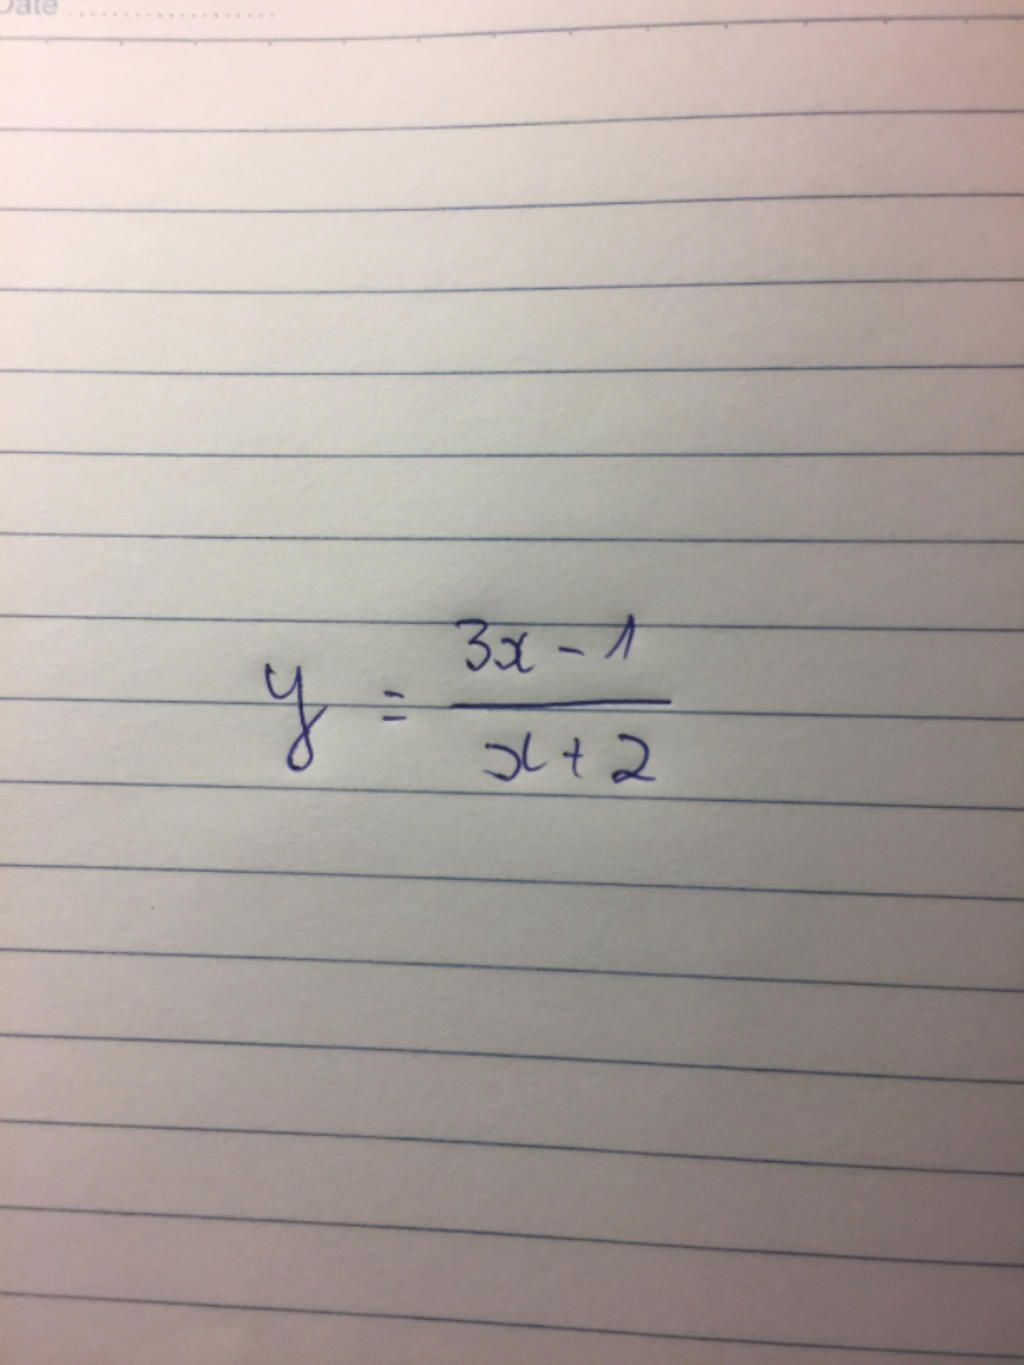 Date ....................
y = \frac{3x - 1}{x + 2}